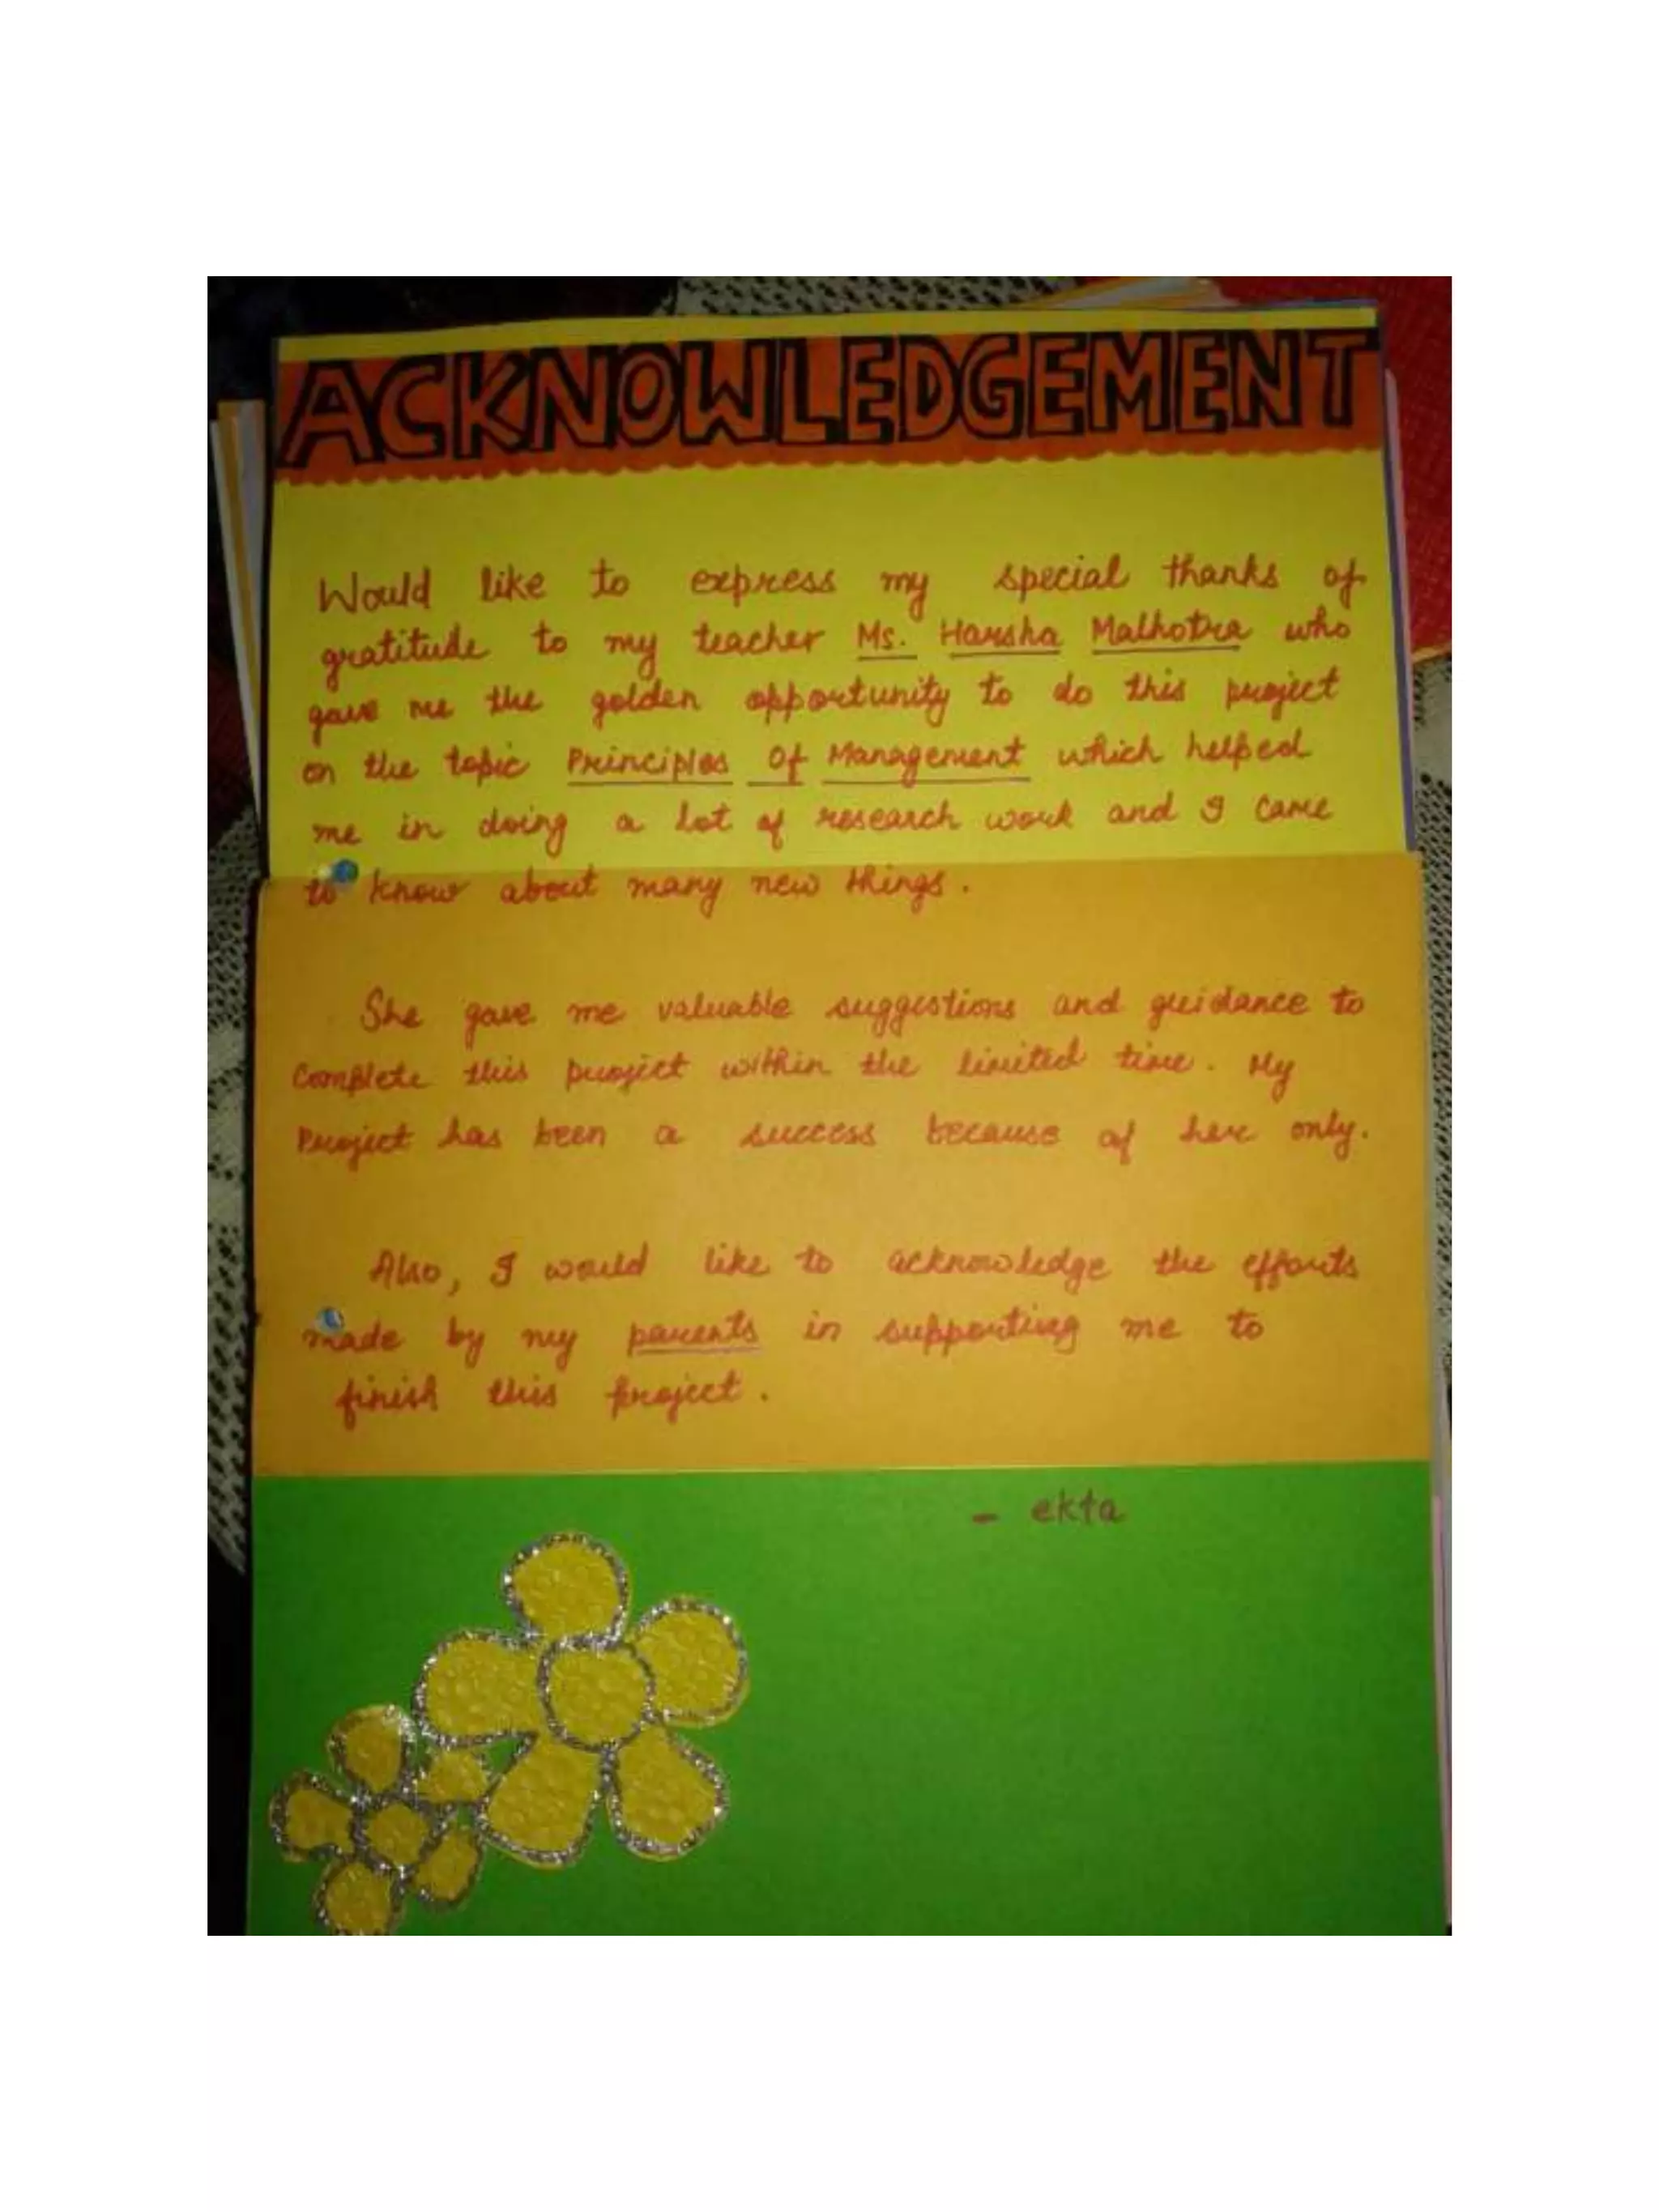 ACKNOWLEDGEMENT
Would like to express my special thanks of
gratitude to my teacher Ms. Harsha Malhotra who
gave me the golden opportunity to do this project
on the topic Principles Of Management which helped
me in doing a lot of research work and I came
to know about many new things.
She gave me valuable suggestions and guidance to
complete this project within the limited time. My
Project has been a success because of her only.
Also, I would like to acknowledge the efforts
made by my parents in supporting me to
finish this project.
- ekta